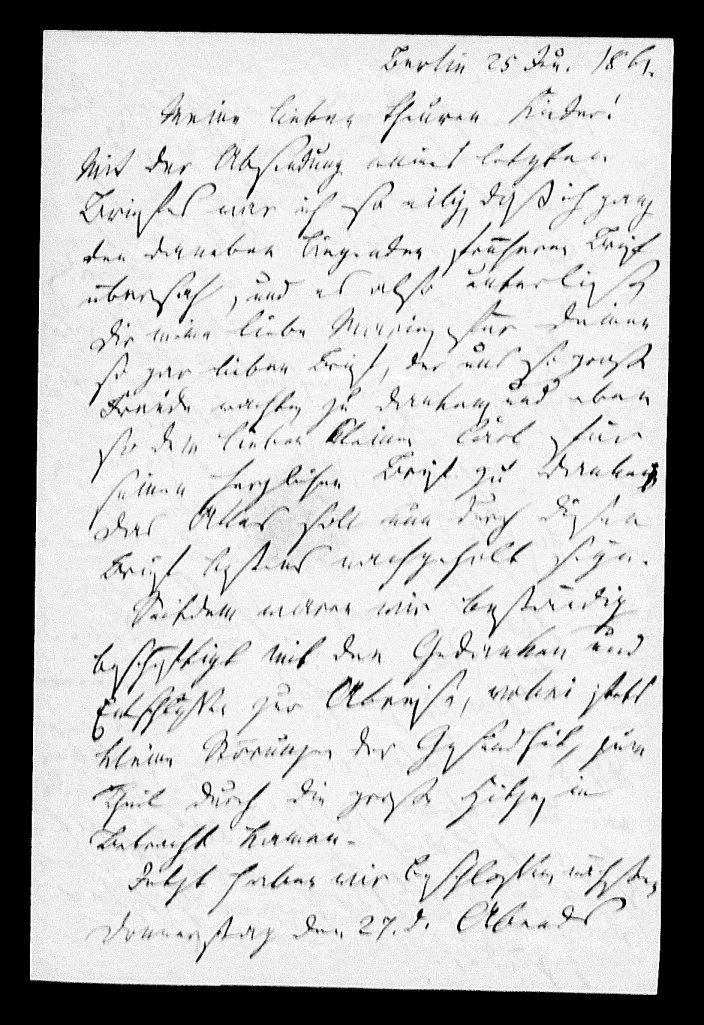 Berlin 25 Jun. 1861.
Meine lieben theuren Kinder!
Mit der Absendung meines letzten
Briefes war ich so eilig, daß ich ganz
den daneben liegenden früheren Brief
übersah, und es also unterließ
Dir meine liebe für Deinen
so gar lieben Brief, der uns so große
Freude machte, zu danken, und eben
so dem lieben kleinen Carl für
seinen herzlichen Brief zu danken,
das Alles soll nun durch diesen
Brief bestens nachgeholt seyn.
Seitdem waren wir beständig
beschäftigt mit den Gedanken und
Entschlüssen zur Abreise, wobei stets
kleine Störungen der Gesundheit, zum
Theil durch die große Hitze, in
Betracht kamen.
Jetzt haben wir beschlossen, nächsten
Donnerstag den 27. d. Abends